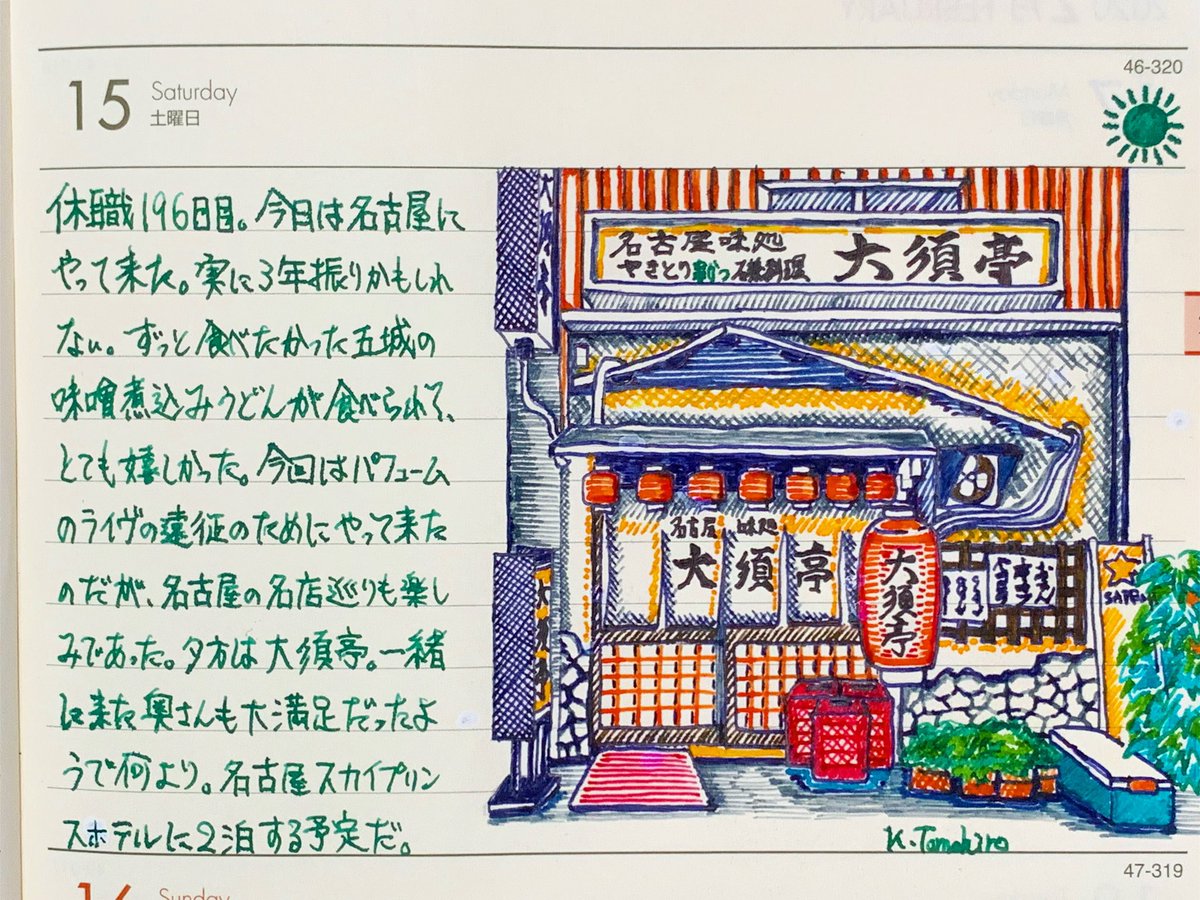 46-320
15 Saturday
土曜日
休職196日目。今日は名古屋に
やって来た。実に3年振りかもしれ
ない。ずっと食べたかった五城の
味噌煮込みうどんが食べられて、
とても嬉しかった。今回はパフューム
のライヴの遠征のためにやって来た
のだが、名古屋の名店巡りも楽し
みであった。夕方は大須亭。一緒
に来た奥さんも大満足だったよ
うで何より。名古屋スカイプリン
スホテルに2泊する予定だ。
名古屋味処
やきとり 串かつ 料理
大須亭
名古屋 味処
大須亭
大須亭
K.Tamahiro
47-319
Sunday